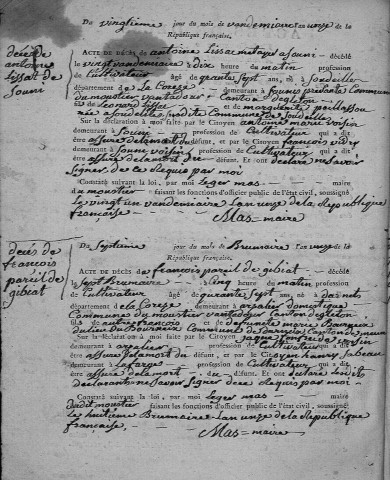 décès de
antoine
Lissac de
Souni
Du vingtieme jour du mois de vendemiaire an onze de la
République française.
ACTE DE DÉCÈS de antoine Lissac metayer a souni - décédé
le vingt vendemiaire à dix heures du matin profession
de Cultivateur âgé de quarante sept ans, né à Soudeilles
département de la Coreze demeurant à Sounis presente Commune
du moustier vantadour - Canton degleton
fils de Leonard Lissac et de marguerite
née a soudeilles susdite Commune de Soudeilles
Sur la déclaration à moi faite par le Citoyen antoine marie voisin
demeurant à Souni profession de Cultivateur qui a dit
être assuré de la mort du défunt, et par le Citoyen françois vidry
demeurant à Souni voisin profession de Cultivateur, qui a dit
être assuré de la mort du - Et ont declaré ne savoir
signer de ce Requis par moi
Constaté suivant la loi, par moi Leger mas - maire
du moustier - faisant les fonctions d'officier public de l'état civil, soussigné
Le vingt un vendemiaire Lan onze de la Republique
francaise - Mas = maire
décès de
francois
pareil de
gibiat
Du Septieme jour du mois de Brumaire Lan onze de la
République française.
ACTE DE DÉCÈS de françois pareil de gibiat - décédé
le sept Brumaire à cinq heures du matin, profession
de Cultivateur âgé de quarante sept ans, né à darnets
département de la Coreze demeurant à arpalier domestique
Commune du moustier vantadour Canton degleton
fils de autre françois et de defunte marie Bourgeix
Commune de Canton de
Sur la déclaration à moi faite par le Citoyen voisin
demeurant à arpalier profession de Cultivateur, qui a dit
être assuré de la mort du défunt, et par le Citoyen henry Sabeau
demeurant à Lafarge - profession de Cultivateur, qui a dit
être assuré de la mort - du - défunt. Et ont declaré Lesdits
declarants ne savoir signer de ce Requis par moi -
Constaté suivant la loi, par moi Leger mas - maire
dudit moustier faisant les fonctions d'officier public de l'état civil, soussigné
Le huitieme Brumaire - Lan onze de la Republique
française. Mas = maire